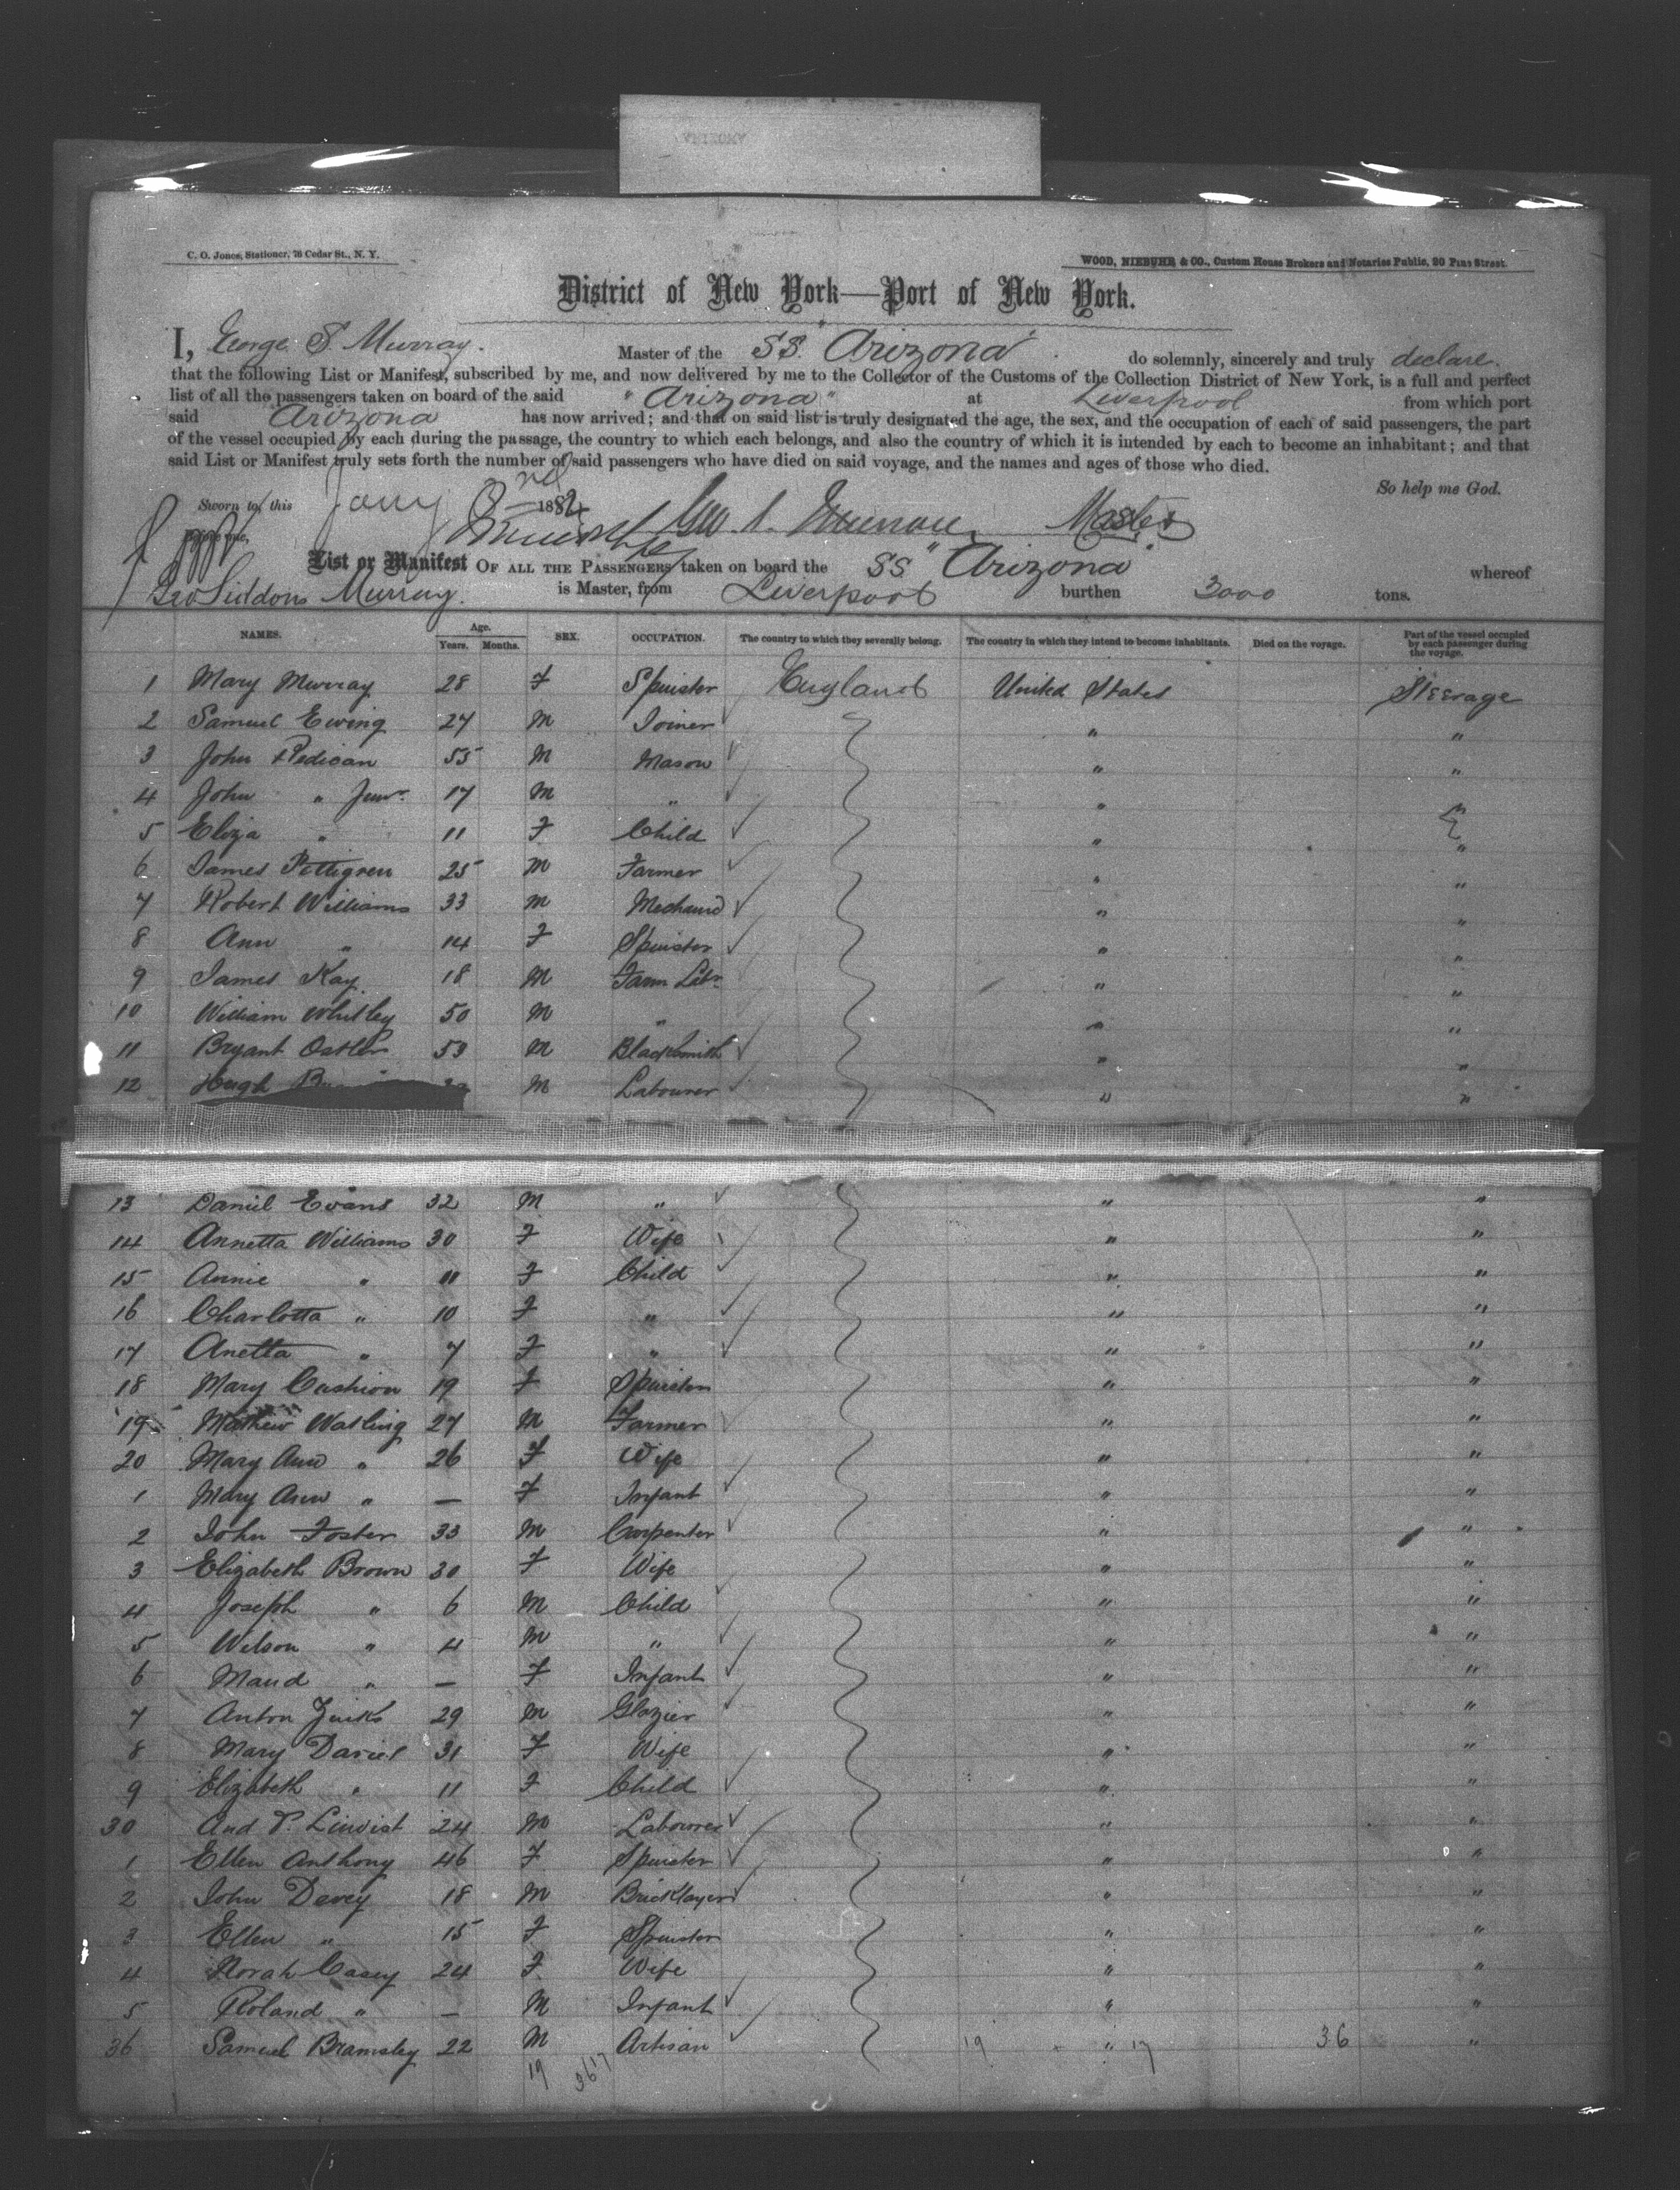 C. O. Jones, Stationer, 76 Cedar St., N. Y.
WOOD, NIEBUHR & CO., Custom House Brokers and Notaries Public, 20 Pine Street.
District of New York—Port of New York.
I, George S. Murray. Master of the SS. "Arizona" do solemnly, sincerely and truly declare.
that the following List or Manifest, subscribed by me, and now delivered by me to the Collector of the Customs of the Collection District of New York, is a full and perfect
list of all the passengers taken on board of the said "Arizona" at Liverpool from which port
said Arizona has now arrived; and that on said list is truly designated the age, the sex, and the occupation of each of said passengers, the part
of the vessel occupied by each during the passage, the country to which each belongs, and also the country of which it is intended by each to become an inhabitant; and that
said List or Manifest truly sets forth the number of said passengers who have died on said voyage, and the names and ages of those who died.
So help me God.
Sworn to this Jany 1884
Before me, Geo. S. Murray Master
List or Manifest OF ALL THE PASSENGERS taken on board the SS "Arizona" whereof
Geo Siddons Murray. is Master, from Liverpool burthen 3000 tons.
NAMES. Age. Years. Months. SEX. OCCUPATION. The country to which they severally belong. The country in which they intend to become inhabitants. Died on the voyage. Part of the vessel occupied by each passenger during the voyage.
1 Mary Murray 28 F Spinster England United States Steerage
2 Samuel Ewing 27 M Joiner " "
3 John Redican 55 M Mason " "
4 John " Junr. 17 M " "
5 Eliza " 11 F Child " "
6 James Pettigrew 25 M Farmer " "
7 Robert Williams 33 M Mechanic " "
8 Ann " 14 F Spinster " "
9 James Kay 18 M Farm Labr " "
10 William Whitley 50 M " " "
11 Bryant Ostler 53 M Blacksmith " "
12 Hugh M Labourer " "
13 Daniel Evans 32 M " " "
14 Annetta Williams 30 F Wife " "
15 Annie " 11 F Child " "
16 Charlotta " 10 F " " "
17 Anetta " 7 F " " "
18 Mary Cashion 19 F Spinster " "
19 Mathew Watling 27 M Farmer " "
20 Mary Ann " 26 F Wife " "
1 Mary Ann " — F Infant " "
2 John Foster 33 M Carpenter " "
3 Elizabeth Brown 30 F Wife " "
4 Joseph " 6 M Child " "
5 Wilson " 4 M " " "
6 Maud " — F Infant " "
7 Anton 29 M Glazier " "
8 Mary Daniel 31 F Wife " "
9 Elizabeth " 11 F Child " "
30 And P. Linvist 24 M Labourer " "
1 Ellen Anthony 46 F Spinster " "
2 John Davey 18 M Bricklayer " "
3 Ellen " 15 F Spinster " "
4 Norah Casey 24 F Wife " "
5 Roland " — M Infant " "
36 Samuel Bramsley 22 M Artisan 19 " 17 36 "
19 36 17